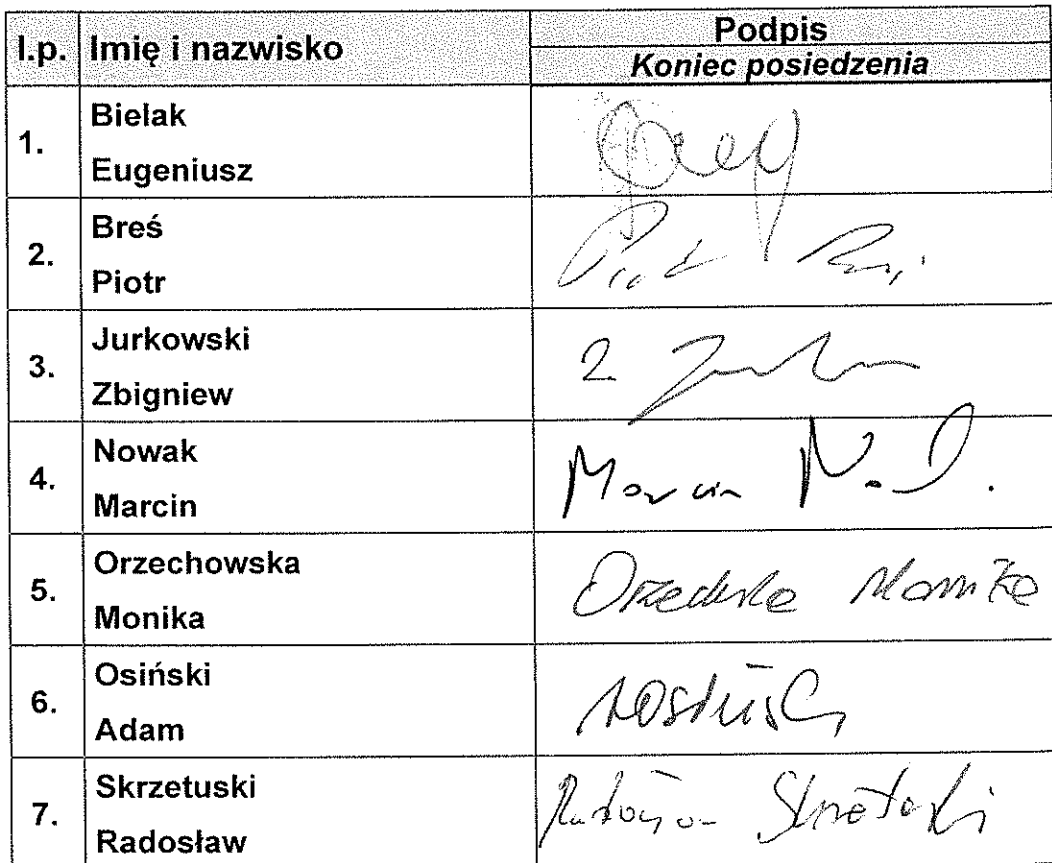 l.p. Imię i nazwisko Podpis
Koniec posiedzenia
1. Bielak
Eugeniusz
2. Breś
Piotr
3. Jurkowski
Zbigniew
4. Nowak
Marcin Marcin
5. Orzechowska
Monika Monika
6. Osiński
Adam
7. Skrzetuski
Radosław Skrzetuski